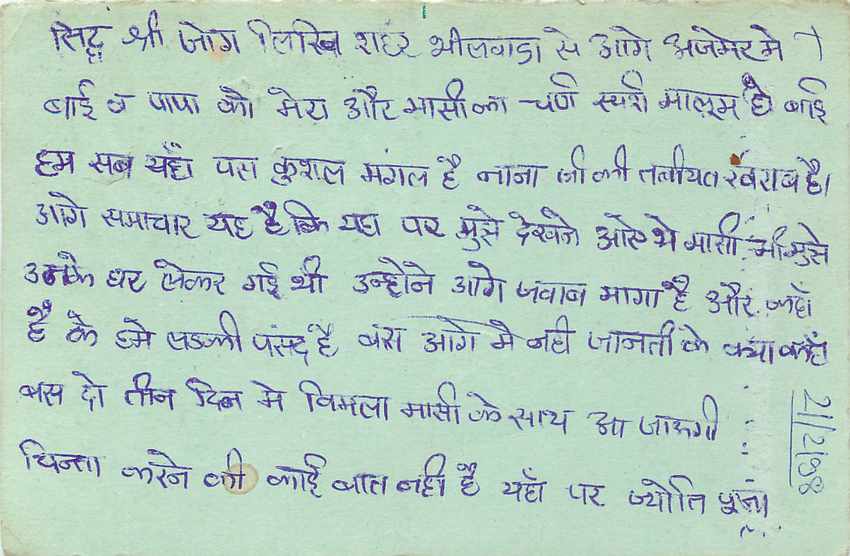 सिद्ध श्री जोग लिखि शहर भीलवाडा से आगे अजमेर मे
बाई व पापा को मेरा और मासी का चर्ण स्पर्श मालूम हो बाई
हम सब यहाँ पर कुशल मंगल है नाना जी की तबीयत खराब है।
आगे समाचार यह है कि यहा पर मुझे देखने आऐ थे मासी मुझे
उनके घर लेकर गई थी उन्होने आगे जवाब मागा है और कहाँ
है के हमे लडकी पसंद है बस आगे मै नही जानती के क्या कहाँ
बस दो तीन दिन मे विमला मासी के साथ आ जाऊगी
चिन्ता करने की कोई बात नही है यहाँ पर ज्योति
21/2/98